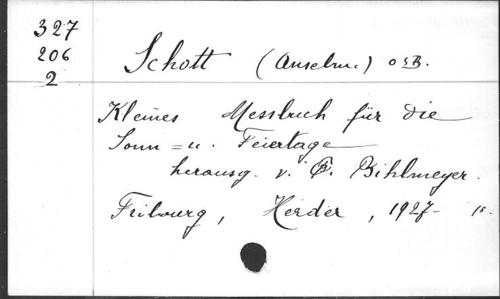 327
206
2
Schott (Anselm.) OSB.
Kleines Messbuch für die
Sonn = u. Feiertage
herausg. v. P. Bihlmeyer.
Fribourg, Herder, 1927-